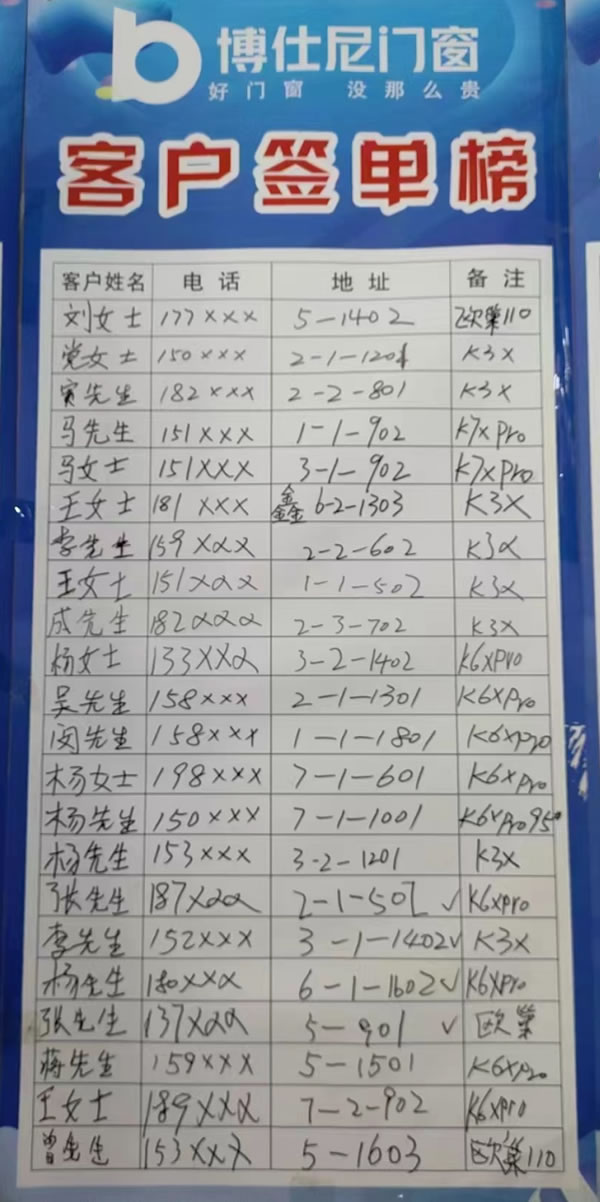 b 博仕尼门窗
好门窗 没那么贵
客户签单榜
客户姓名 电话 地址 备注
刘女士 177××× 5-1402 欧巢110
党女士 150××× 2-1-1201 K3X
寅先生 182××× 2-2-801 K3X
马先生 151××× 1-1-902 K7XPro
马女士 151××× 3-1-902 K7XPro
王女士 181××× 鑫鑫 6-2-1303 K3X
李先生 159××× 2-2-602 K3X
王女士 151××× 1-1-502 K3X
成先生 182××× 2-3-702 K3X
杨女士 133××× 3-2-1402 K6XPro
吴先生 158××× 2-1-1301 K6XPro
闵先生 158××× 1-1-1801 K6XPro
杨女士 198××× 7-1-601 K6XPro
杨先生 150××× 7-1-1001 K6XPro95
杨先生 153××× 3-2-1201 K3X
张先生 187××× 2-1-502 ✓ K6XPro
李先生 152××× 3-1-1402 ✓ K3X
杨先生 180××× 6-1-1602 ✓ K6XPro
张先生 137××× 5-901 ✓ 欧巢
蒋先生 159××× 5-1501 K6XPro
王女士 189××× 7-2-902 K6XPro
曾先生 153××× 5-1603 欧巢110